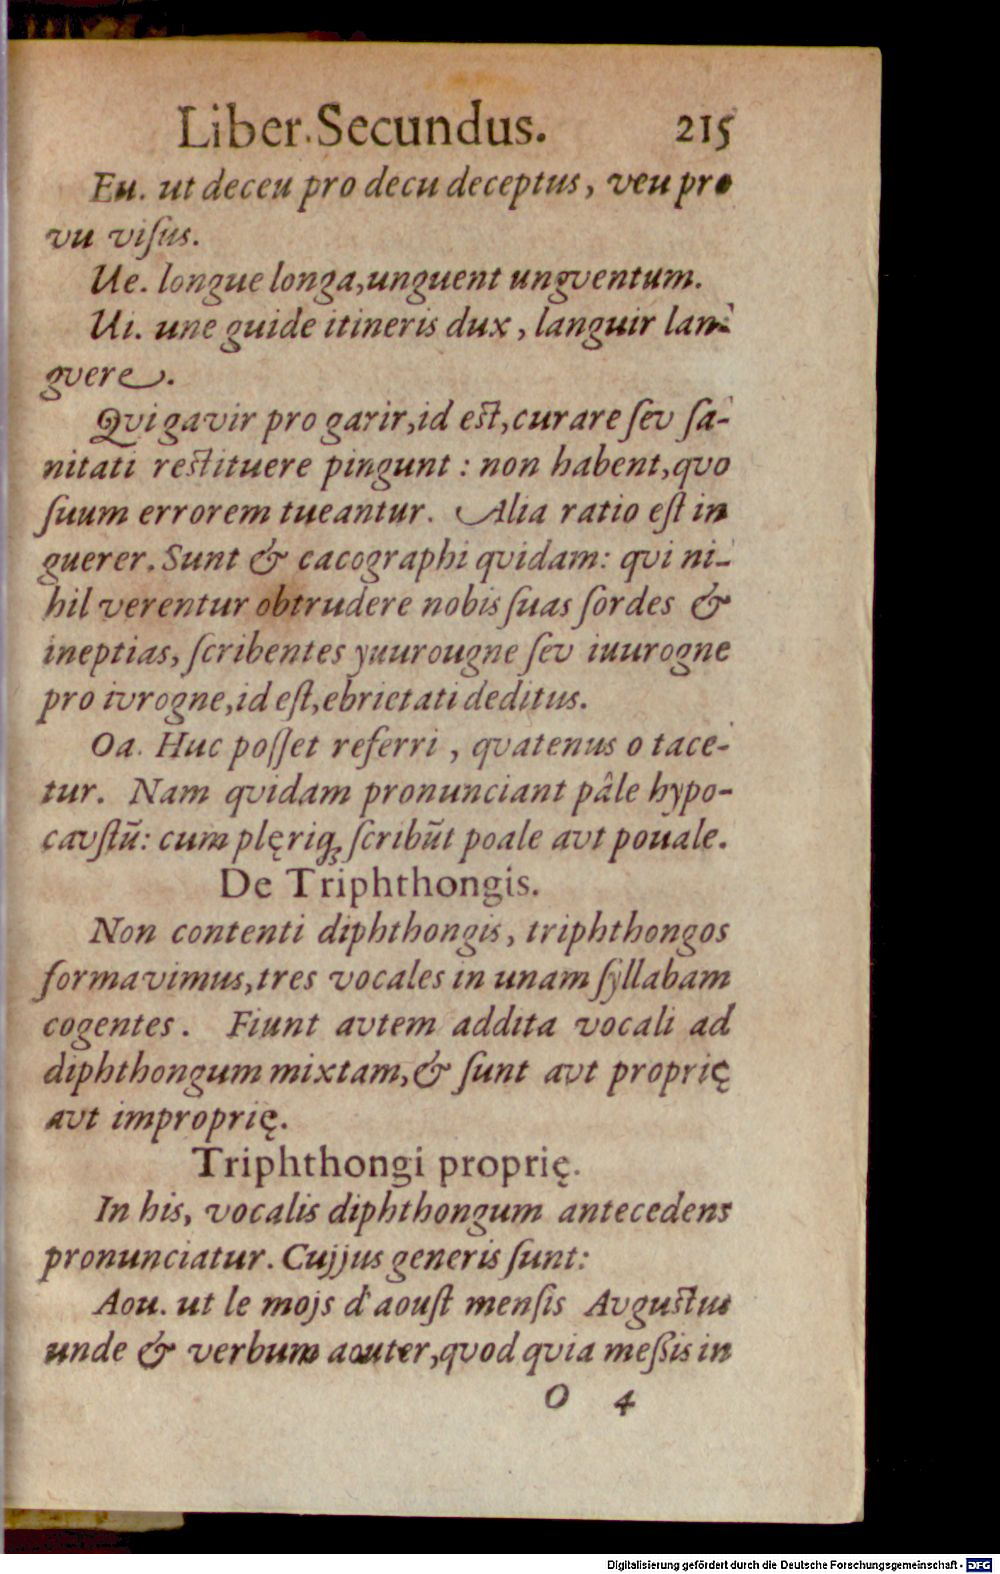 Liber Secundus. 215
Eu. ut deceu pro decu deceptus, veu pro
vu viſus.
Ue. longue longa, unguent ungventum.
Ui. une guide itineris dux, languir lan-
gvere.
Qvi gavir pro garir, id eſt, curare ſev ſa-
nitati reſtituere pingunt: non habent, qvo
ſuum errorem tueantur. Alia ratio eſt in
guerer. Sunt & cacographi qvidam: qvi ni-
hil verentur obtrudere nobis ſuas ſordes &
ineptias, ſcribentes yuurougne ſev iuurogne
pro ivrogne, id eſt, ebrietati deditus.
Oa. Huc poſſet referri, qvatenus o tace-
tur. Nam qvidam pronunciant pâle hypo-
cavſtū: cum plęriq; ſcribūt poale avt pouale.
De Triphthongis.
Non contenti diphthongis, triphthongos
formavimus, tres vocales in unam ſyllabam
cogentes. Fiunt avtem addita vocali ad
diphthongum mixtam, & ſunt avt proprię
avt improprię.
Triphthongi proprię.
In his, vocalis diphthongum antecedens
pronunciatur. Cujjus generis ſunt:
Aou. ut le mojs d'aouſt menſis Avguſtus
unde & verbum aouter, qvod qvia meſsis in
O 4
Digitalisierung gefördert durch die Deutsche Forschungsgemeinschaft - DFG